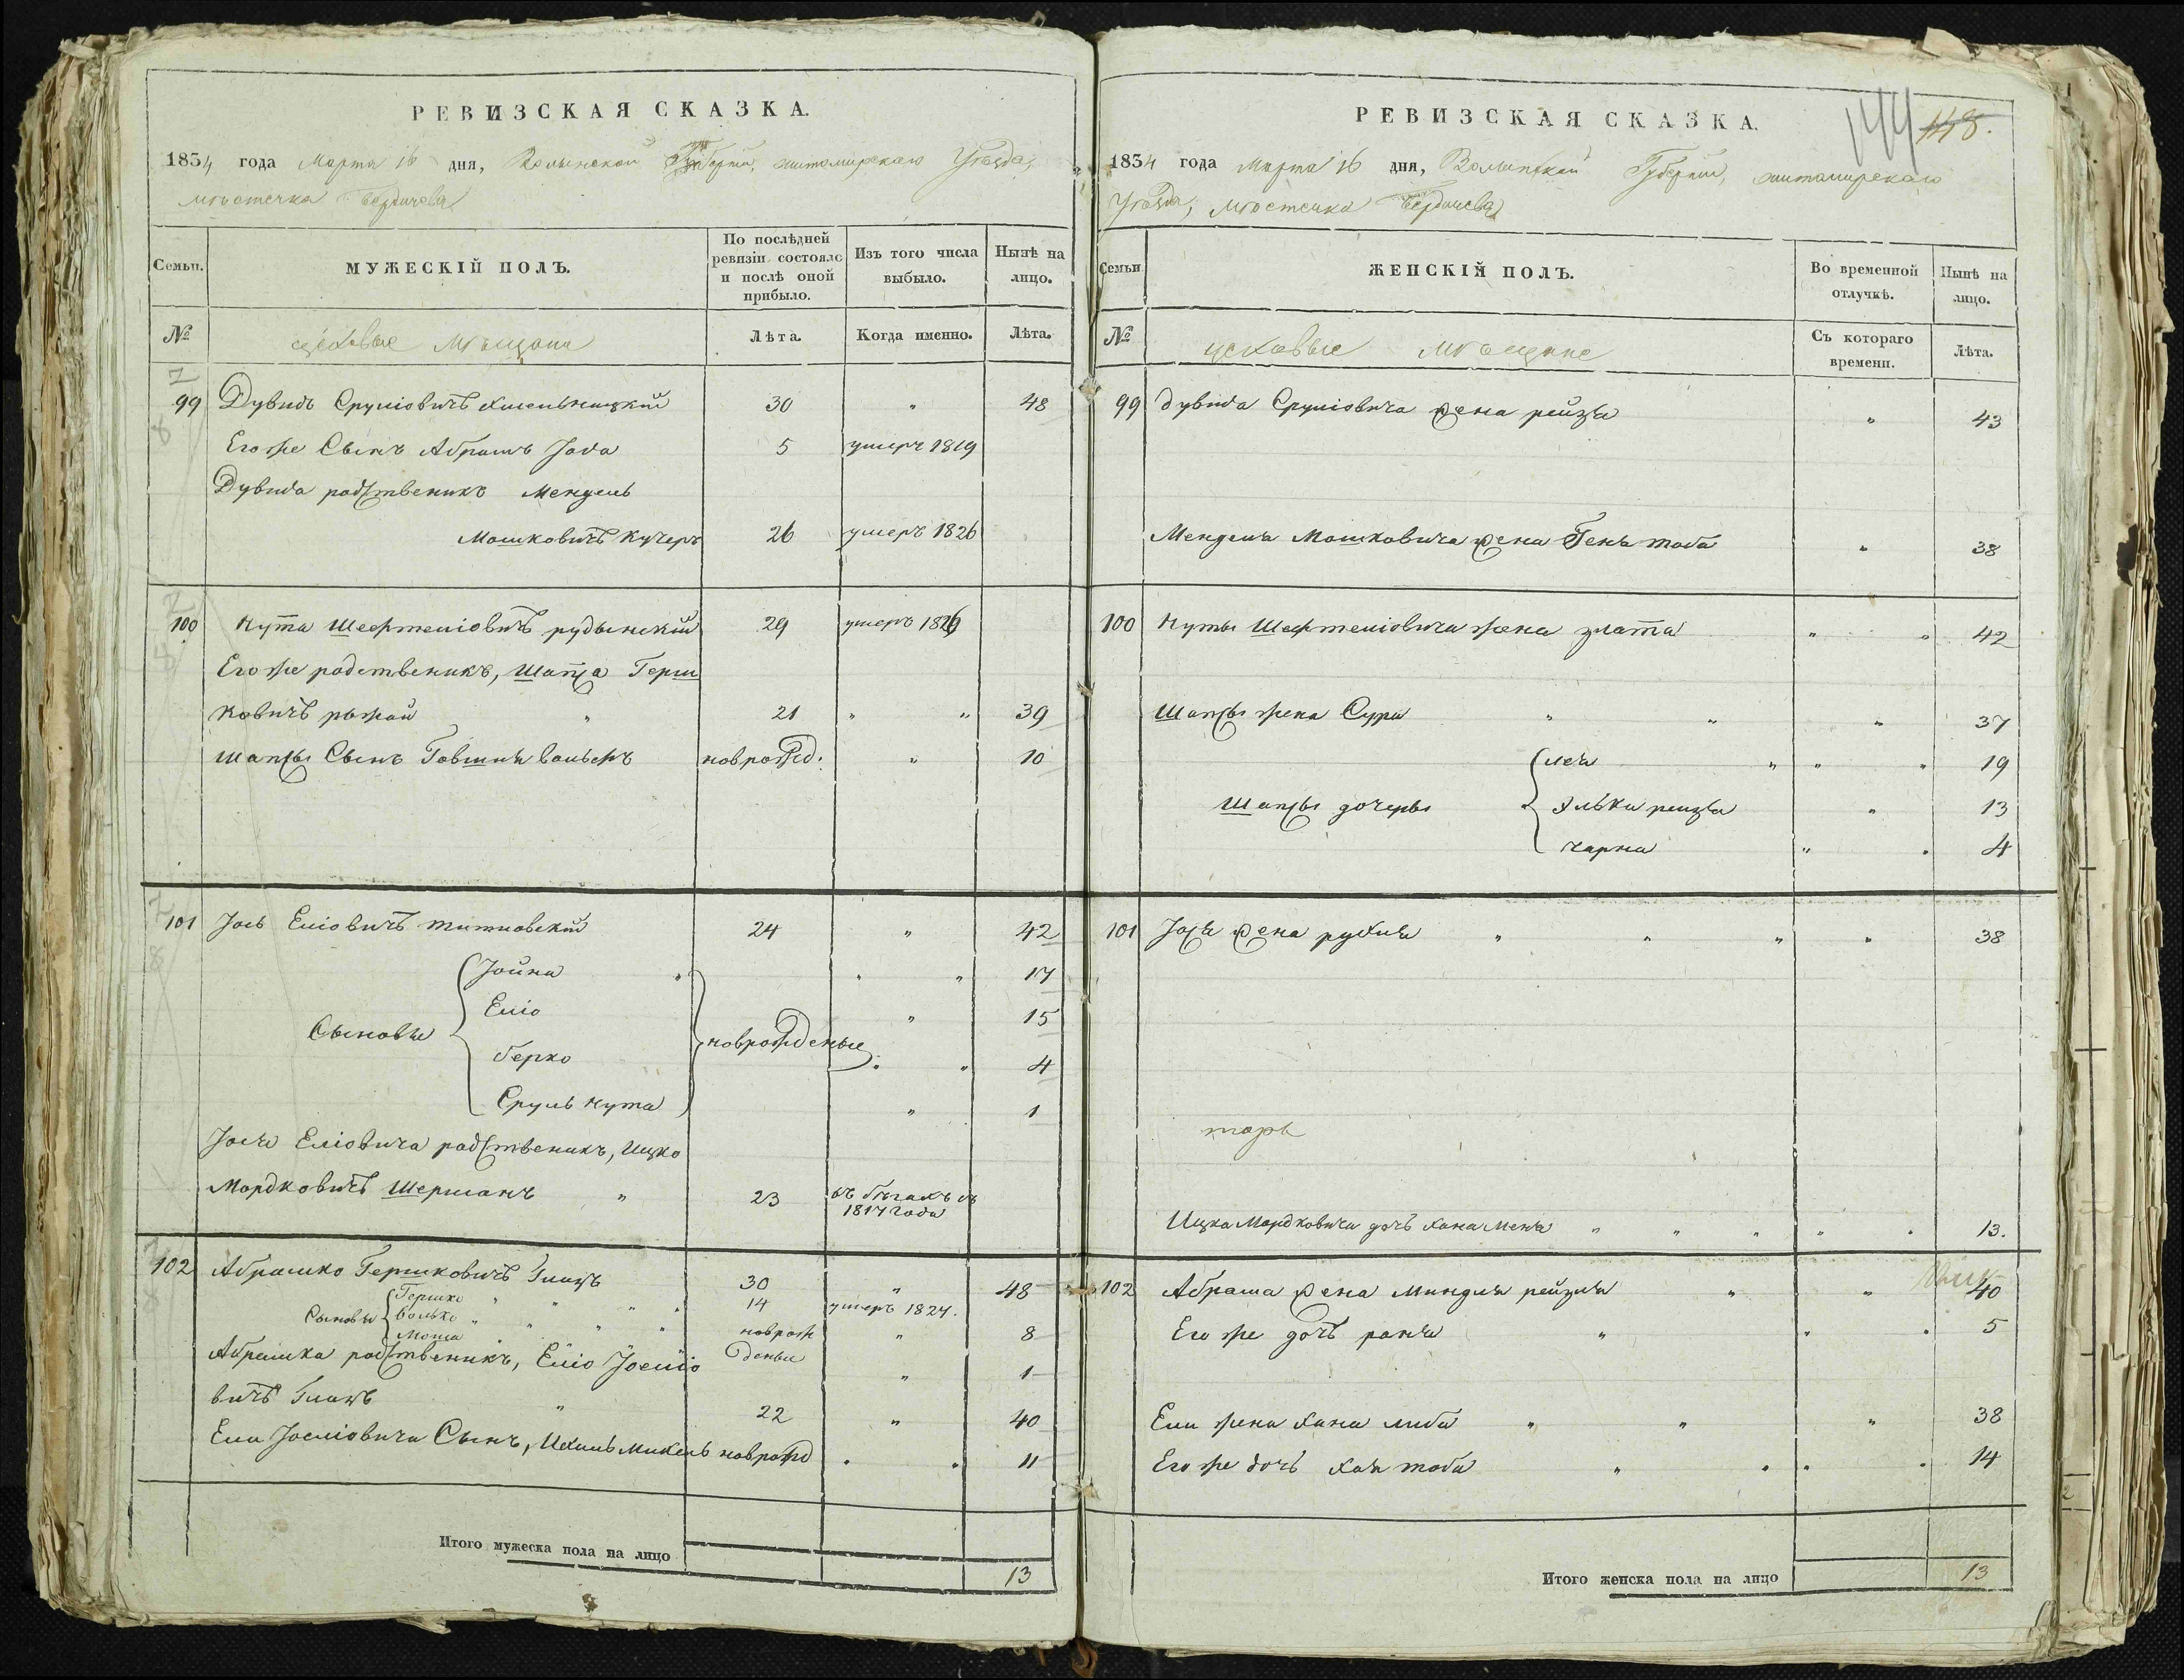 РЕВИЗСКАЯ СКАЗКА.
1834 года Марта 16 дня, Волынской Губерніи, житомирскаго Уѣзда,
мѣстечка Бердичева
Семьи.
МУЖЕСКІЙ ПОЛЪ.
По послѣдней
ревизіи состояло
и послѣ оной
прибыло.
Изъ того числа
выбыло.
Нынѣ на
лицо.
№
цеховые мѣщани
Лѣта.
Когда именно.
Лѣта.
99 Дувидъ Сруліовичъ хмельницкій 30 " 48
Его же Сынъ Абрамъ Іова 5 умеръ 1819
Дувида родственикъ Мендель
Мошковичъ Кучеръ 26 умеръ 1826
100 Нута Шефтеліовичъ рудынскій 29 умеръ 1826
Его же родственикъ, Шапса Герш
ковичъ рыжой " 21 " " 39
шапсы Сынъ Говшия вольфъ новрожд. " 10
101 Іось Еліовичъ титиовскій 24 " 42
Сыновья
Іойна " " " 17
Еліо " 15
берко " " 4
Сруль Нута " 1
новрожденые
Іося Еліовича родственикъ, Ицко
Мордковичъ Шерманъ " 23 въ бѣгахъ съ
1817 года
102 Абрамко Гершковичъ Глазъ 30 " 48
Сыновья
Гершко " " " " 14 умеръ 1827.
Волько " " " " новрож " 8
Мошка денье " 1
Абрамка родственикъ, Еліо Іосиліо
вичъ Глазъ " 22 " 40
Ели Іосиліовича Сынъ, Ихиль Михель новрожд " " 11
Итого мужеска пола на лицо
13
РЕВИЗСКАЯ СКАЗКА.
144
118.
1834 года Марта 16 дня, Волынской Губерніи, житомирскаго
Уѣзда, мѣстечка Бердичева
Семьи
ЖЕНСКІЙ ПОЛЪ.
Во временной
отлучкѣ.
Нынѣ на
лицо.
№
цеховые мѣщане
Съ котораго
времени.
Лѣта.
99 дувида Сруліовича жена рейзя " 43
Менделя Мошковича жена Геня тоба " 38
100 Нуты Шефтеліовича жена злата " " 42
Шапсы жена Сура " " " 37
Шапсы дочеры
лея " " " 19
Элька реизя " 13
чарна " " 4
101 Іося жена рухля " " " " 38
Ицка Мордковича дочь хана Меня " " " " " 13.
102 Абрама жена Миндля рейзля " " 40
Его же дочь раня " " " 5
Ели жена хана либа " " " 38
Его же дочь хая тоба " " " " 14
Итого женска пола на лицо
13